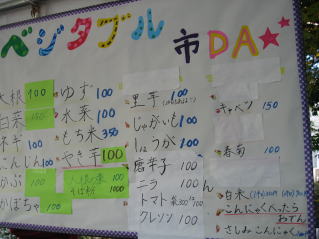 ベジタブル 市DA★★
大根 100
白菜 150
ネギ 100
にんじん 100
かぶ 100
かぼちゃ
ゆず 100
水菜 100
もち米 350
やき芋 100
大根の葉 100
そば粉 100
里芋 100
じゃがいも 100
しょうが 100
唐辛子 100
ニラ 100
トマト 袋300/100
クレソン 100
キャベツ 150
春菊 100
白米
こんにゃくぺったら
おでん
さしみこんにゃく 100